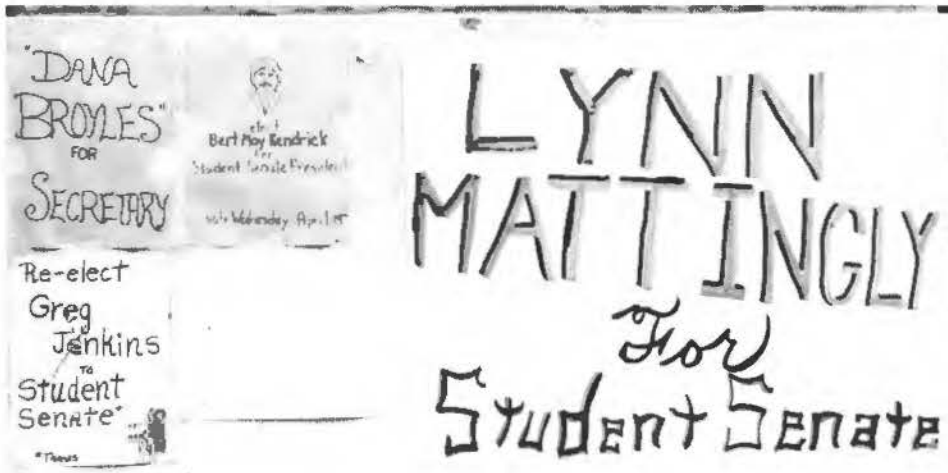 "DANA
BROYLES"
FOR
SECRETARY
elect
Bert May Kendrick
for
Student Senate President
Vote Wednesday April
Re-elect
Greg
Jenkins
TO
Student
SENATE*
LYNN
MATTINGLY
For
Student Senate